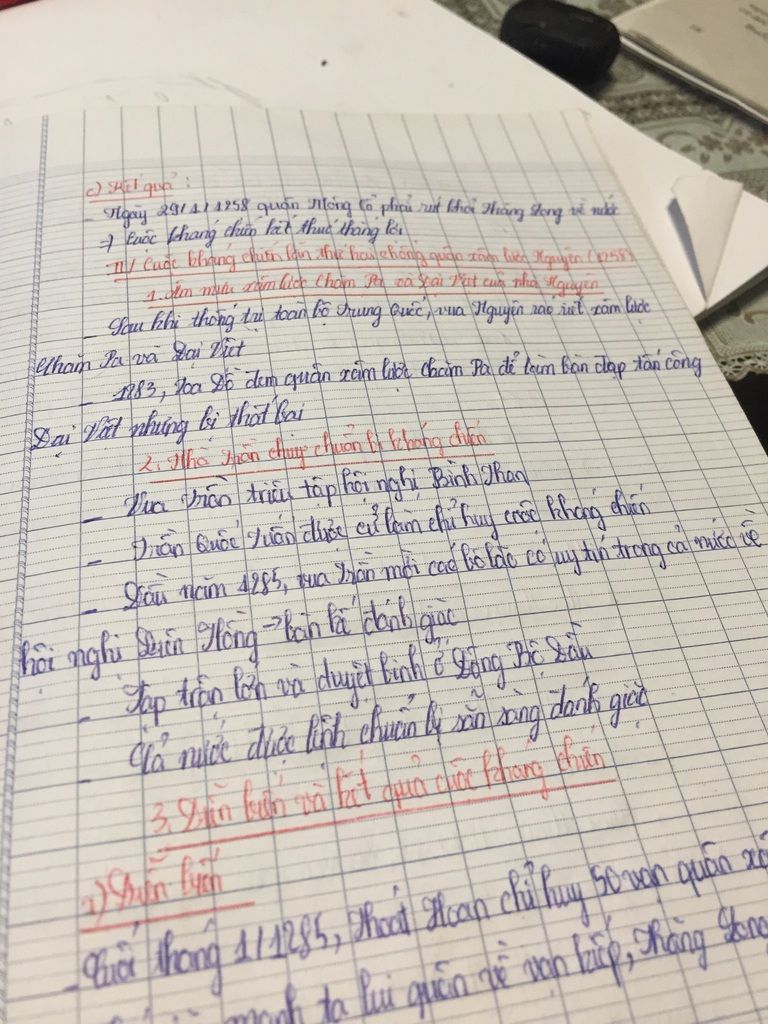 c) Kết quả :
- Ngày 29/1/1258 quân Mông Cổ phải rút khỏi Thăng Long về nước
=> Cuộc kháng chiến kết thúc thắng lợi
II/ Cuộc kháng chiến lần thứ hai chống quân xâm lược Nguyên (1258)
1. Âm mưu xâm lược Chăm Pa và Đại Việt của nhà Nguyên
- Sau khi thống trị toàn bộ Trung Quốc, vua Nguyên ráo riết xâm lược
Chăm Pa và Đại Việt
- 1283, Toa Đô đem quân xâm lược Chăm Pa để làm bàn đạp tấn công
Đại Việt nhưng bị thất bại
2. Nhà Trần chuẩn bị kháng chiến
- Vua Trần triệu tập hội nghị Bình Than
- Trần Quốc Tuấn được cử làm chỉ huy cuộc kháng chiến
- Đầu năm 1285, vua Trần mời các bô lão có uy tín trong cả nước về
hội nghị Diên Hồng -> bàn kế đánh giặc
- Tập trận lớn và duyệt binh ở Đông Bộ Đầu
- Cả nước được lệnh chuẩn bị sẵn sàng đánh giặc
3. Diễn biến và kết quả cuộc kháng chiến
a) Diễn biến
- Cuối tháng 1/1285, Thoát Hoan chỉ huy 50 vạn quân
ta lui quân về Vạn Kiếp, Thăng Long